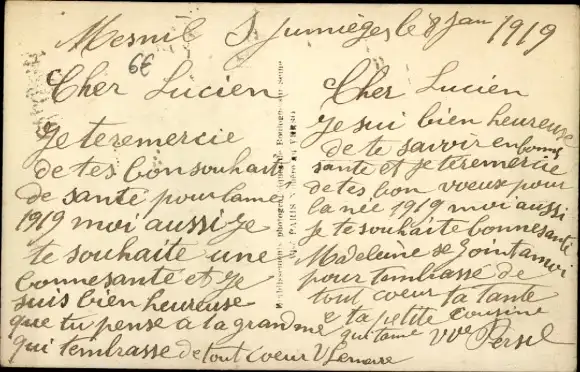 Mesnil S Jumièges le 8 Jan 1919
6€
Cher Lucien
Je teremercie
de tes bon souhait
de santé pour lanné
1919 moi aussi Je
te souhaite une
bonnesante et Je
suis bien heureuse
que tu pense a la grandme
qui tembrasse de tout coeur V
Cher Lucien
Je sui bien heureuse
de te savoir en bonne
sante et Je teremercie
de tes bon voeux pour
la née 1919 moi aussi
Je te souhaite bonnesanté
Madeleine se Joint a moi
pour tembrasse de
tout coeur ta tante
e ta petite cousine
qui taime Vve Persil